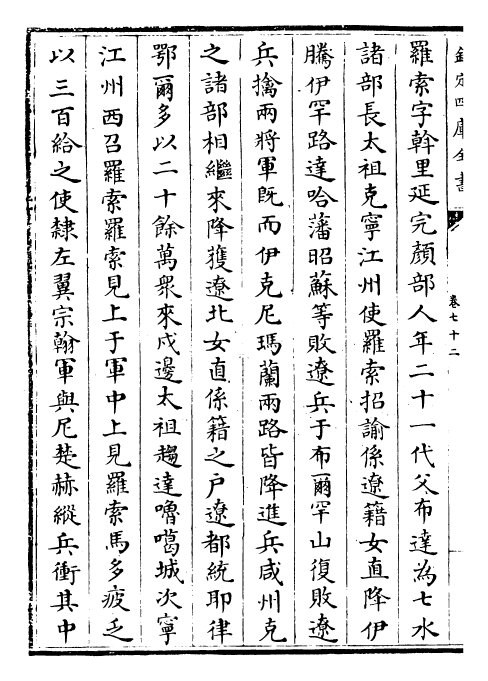 欽定四庫全書
卷七十二
羅索字斡里延完顏部人年二十一代父布達為七水
諸部長太祖克寧江州使羅索招諭係遼籍女直降伊
騰伊罕路達哈藩昭蘇等敗遼兵于布爾罕山復敗遼
兵擒兩將軍既而伊克尼瑪蘭兩路皆降進兵咸州克
之諸部相繼來降獲遼北女直係籍之户遼都統耶律
鄂爾多以二十餘萬衆來戍邊太祖趨達嚕噶城次寧
江州西召羅索羅索見上于軍中上見羅索馬多疲乏
以三百給之使隸左翼宗翰軍與尼楚赫縱兵衝其中